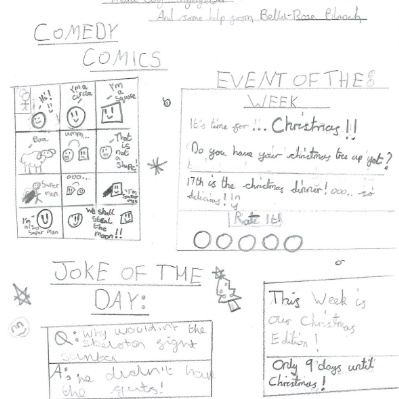 And some help from Bella-Rose
COMEDY
COMICS
Hi!
I'm a circle
I'm a square
Baa.
umm...
That is not a shape!
Super man
ooo...
I'm Super man
I'm also Super man
We shall steal the moon!!
EVENT OF THE
WEEK
It's time for!... Christmas!!
Do you have your christmas tree up yet?
17th is the christmas dinner! ooo.. so
delicious!
Rate It!
JOKE OF THE
DAY:
Q: why wouldn't the
skeleton fight
A: he didn't have
the guts!
or
This Week is
our Christmas
Edition!
Only 9 days until
Christmas!